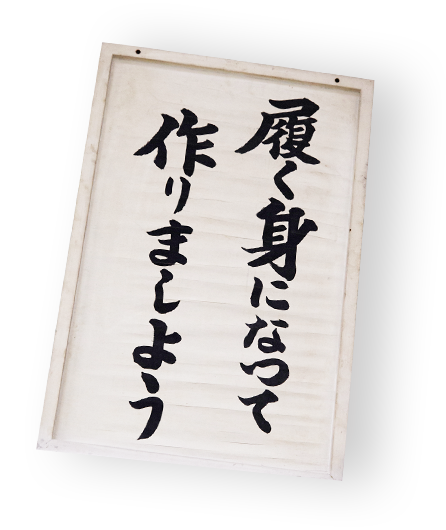 履く身になつて
作りましよう